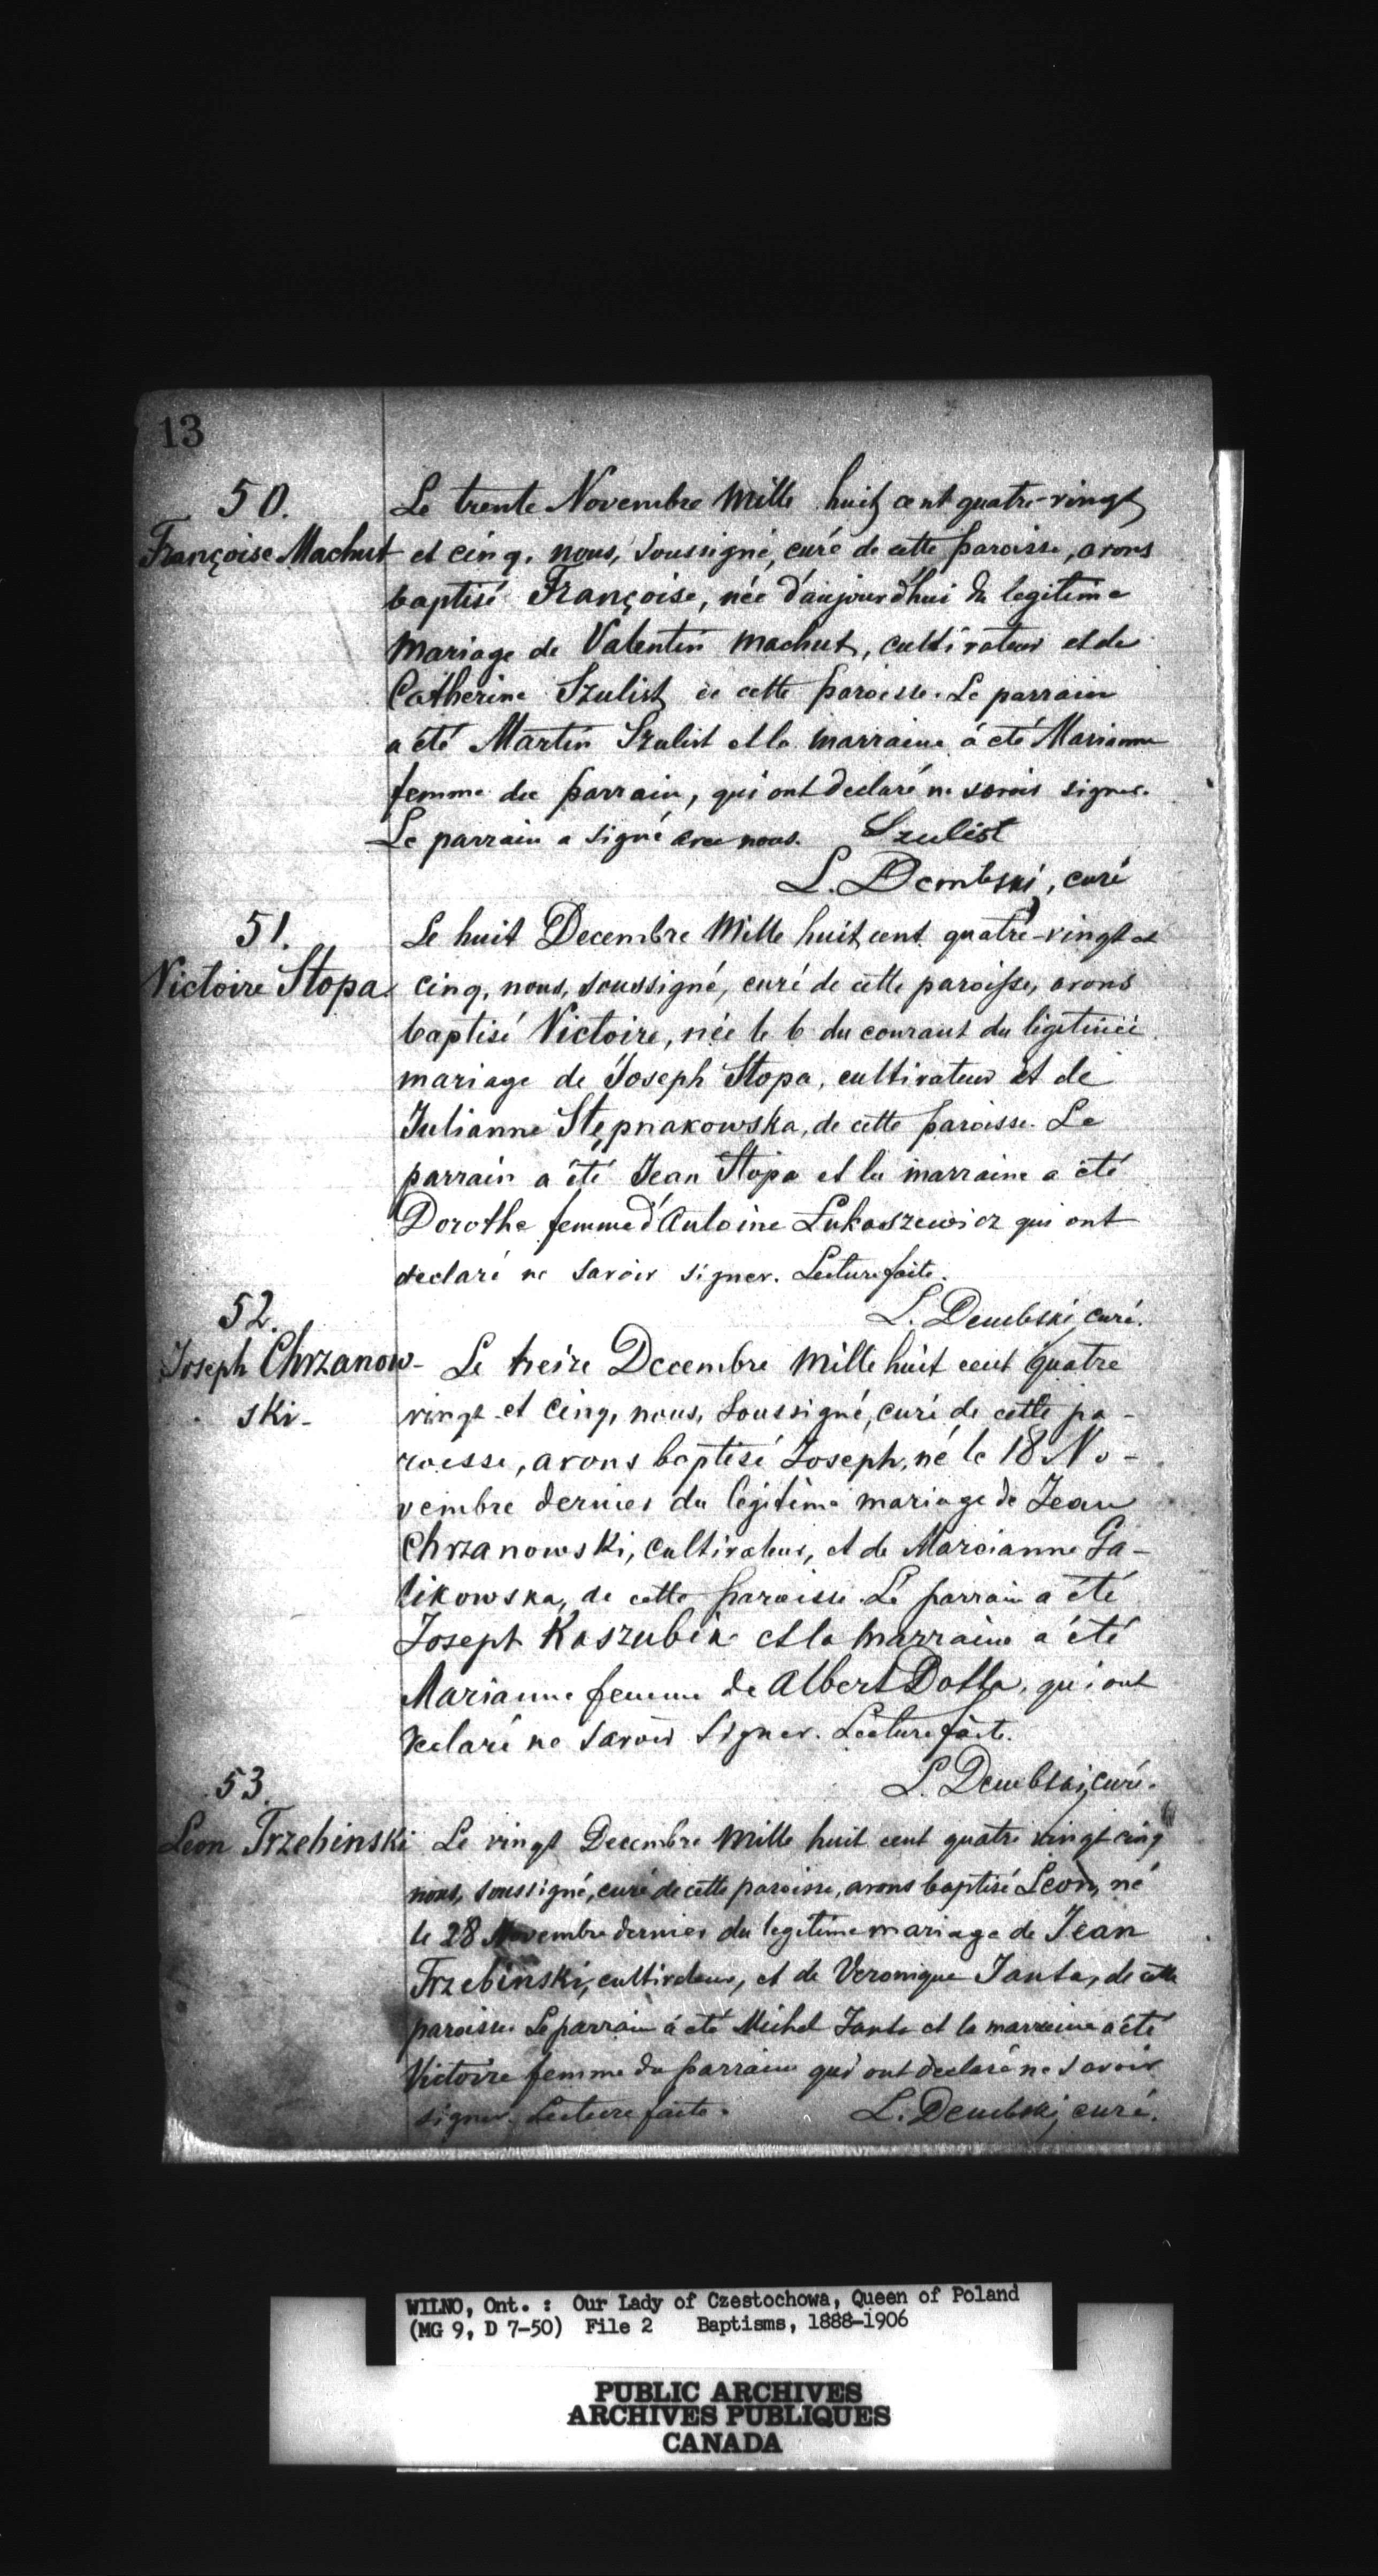 13
50.
Françoise Machut
Le trente Novembre Mille huit cent quatre-vingt
et cinq, nous, soussigné, curé de cette paroisse, avons
baptisé Françoise, née d'aujourd'hui du legitime
Mariage de Valentin Machut, cultivateur et de
Catherine Szulist de cette paroisse. Le parrain
a été Martin Szulist et la marraine á été Marianne
femme du parrain, qui ont declaré ne savoir signer.
Le parrain a signé avec nous. Szulist
L. Dembski, curé
51.
Victoire Stopa
Le huit Decembre Mille huit cent quatre-vingt et
cinq, nous, soussigné, curé de cette paroisse, avons
baptisé Victoire, née le 6 du courant du legitime
mariage de Joseph Stopa, cultivateur et de
Julianne Stępnakowska, de cette paroisse. Le
parrain a été Jean Stopa et la marraine a été
Dorothe femme d'Antoine Lukaszewicz qui ont
declaré ne savoir signer. Lecture faite.
L. Dembski, curé.
52.
Joseph Chrzanow-
ski-
Le treize Decembre Mille huit cent quatre
vingt et cinq, nous, soussigné, curé de cette pa-
roisse, avons baptisé Joseph, né le 18 No-
vembre dernier du legitime mariage de Jean
Chrzanowski, cultivateur, et de Marcianne Ga-
likowska, de cette paroisse. Le parrain a été
Joseph Kaszubik et la marraine a été
Marianne femme de Albert Dotta, qui ont
declaré ne savoir signer. Lecture faite.
L. Dembski, curé.
53.
Leon Trzebinski
Le vingt Decembre Mille huit cent quatre vingt cinq
nous, soussigné, curé de cette paroisse, avons baptisé Leon, né
le 28 Novembre dernier du legitime mariage de Jean
Trzebinski, cultivateur, et de Veronique Janta, de cette
paroisse. Le parrain á été Michel Janta et la marraine a été
Victoire femme du parrain qui ont declaré ne savoir
signer. Lecture faite. L. Dembski, curé.
WILNO, Ont. : Our Lady of Czestochowa, Queen of Poland
(MG 9, D 7-50) File 2 Baptisms, 1888-1906
PUBLIC ARCHIVES
ARCHIVES PUBLIQUES
CANADA